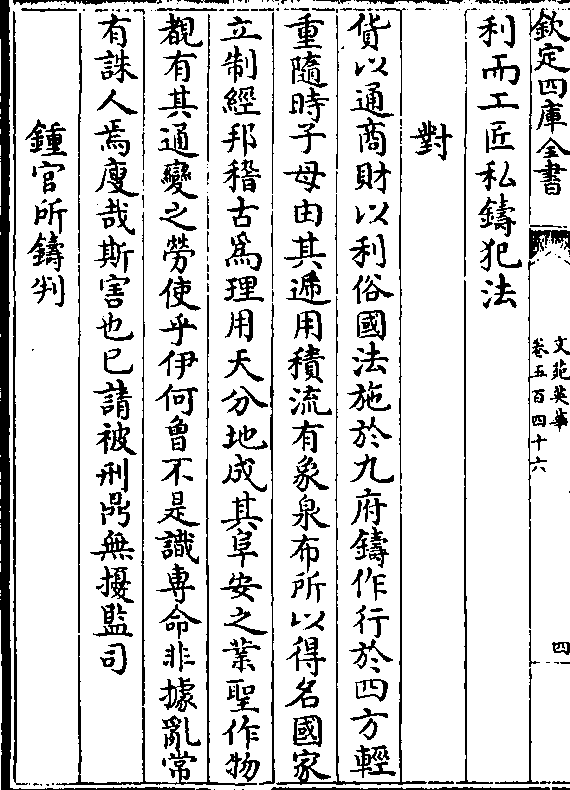 欽定四庫全書
文苑英華
卷五百四十六
四
利而工匠私鑄犯法
對
貨以通商財以利俗國法施於九府鑄作行於四方輕
重隨時子母由其遞用積流有象泉布所以得名國家
立制經邦稽古爲理用天分地成其阜安之業聖作物
覩有其通變之勞使乎伊何曾不是識専命非據亂常
有誅人焉廋哉斯害也已請被刑鼎無擾監司
鍾官所鑄判